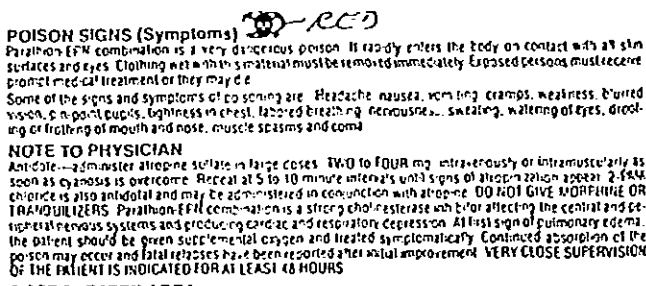 POISON SIGNS (Symptoms) - RED
Parathion-EPN combination is a very dangerous poison. It rapidly enters the body on contact with all skin
surfaces and eyes. Clothing wet with this material must be removed immediately. Exposed persons must receive
prompt medical treatment or they may die.
Some of the signs and symptoms of poisoning are: Headache, nausea, vomiting, cramps, weakness, blurred
vision, pin-point pupils, tightness in chest, labored breathing, nervousness, sweating, watering of eyes, drool-
ing or frothing of mouth and nose, muscle spasms and coma.
NOTE TO PHYSICIAN
Antidote—administer atropine sulfate in large doses. TWO to FOUR mg. intravenously or intramuscularly as
soon as cyanosis is overcome. Repeat at 5 to 10 minute intervals until signs of atropinization appear. 2-PAM
chloride is also antidotal and may be administered in conjunction with atropine. DO NOT GIVE MORPHINE OR
TRANQUILIZERS. Parathion-EPN combination is a strong cholinesterase inhibitor affecting the central and pe-
ripheral nervous systems and producing cardiac and respiratory depression. At first sign of pulmonary edema,
the patient should be given supplemental oxygen and treated symptomatically. Continued absorption of the
poison may occur and fatal relapses have been reported after initial improvement. VERY CLOSE SUPERVISION
OF THE PATIENT IS INDICATED FOR AT LEAST 48 HOURS